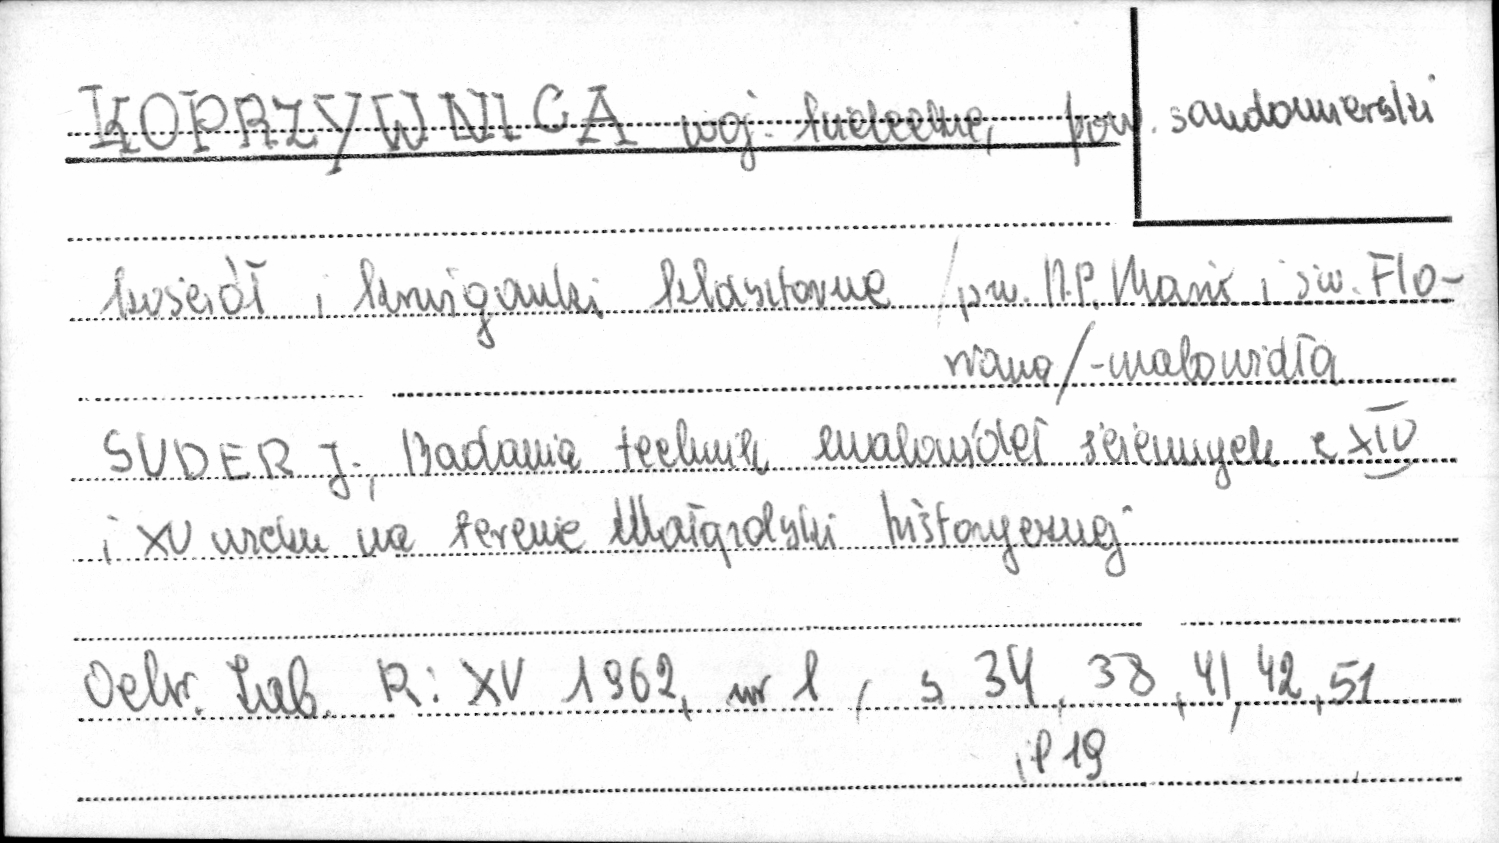 KOPRZYWNICA woj. kieleckie, pow. sandomierski
kościół i krużganki klasztorne /p.w. N.P. Marii i św. Flo-
riana/-malowidła
SUDER J., Badania technik malowideł ściennych z XIV
i XV wieku na terenie Małopolski historycznej
Ochr. Zab. R: XV 1962, nr 1, s 34, 38, 41, 42, 51
il 19